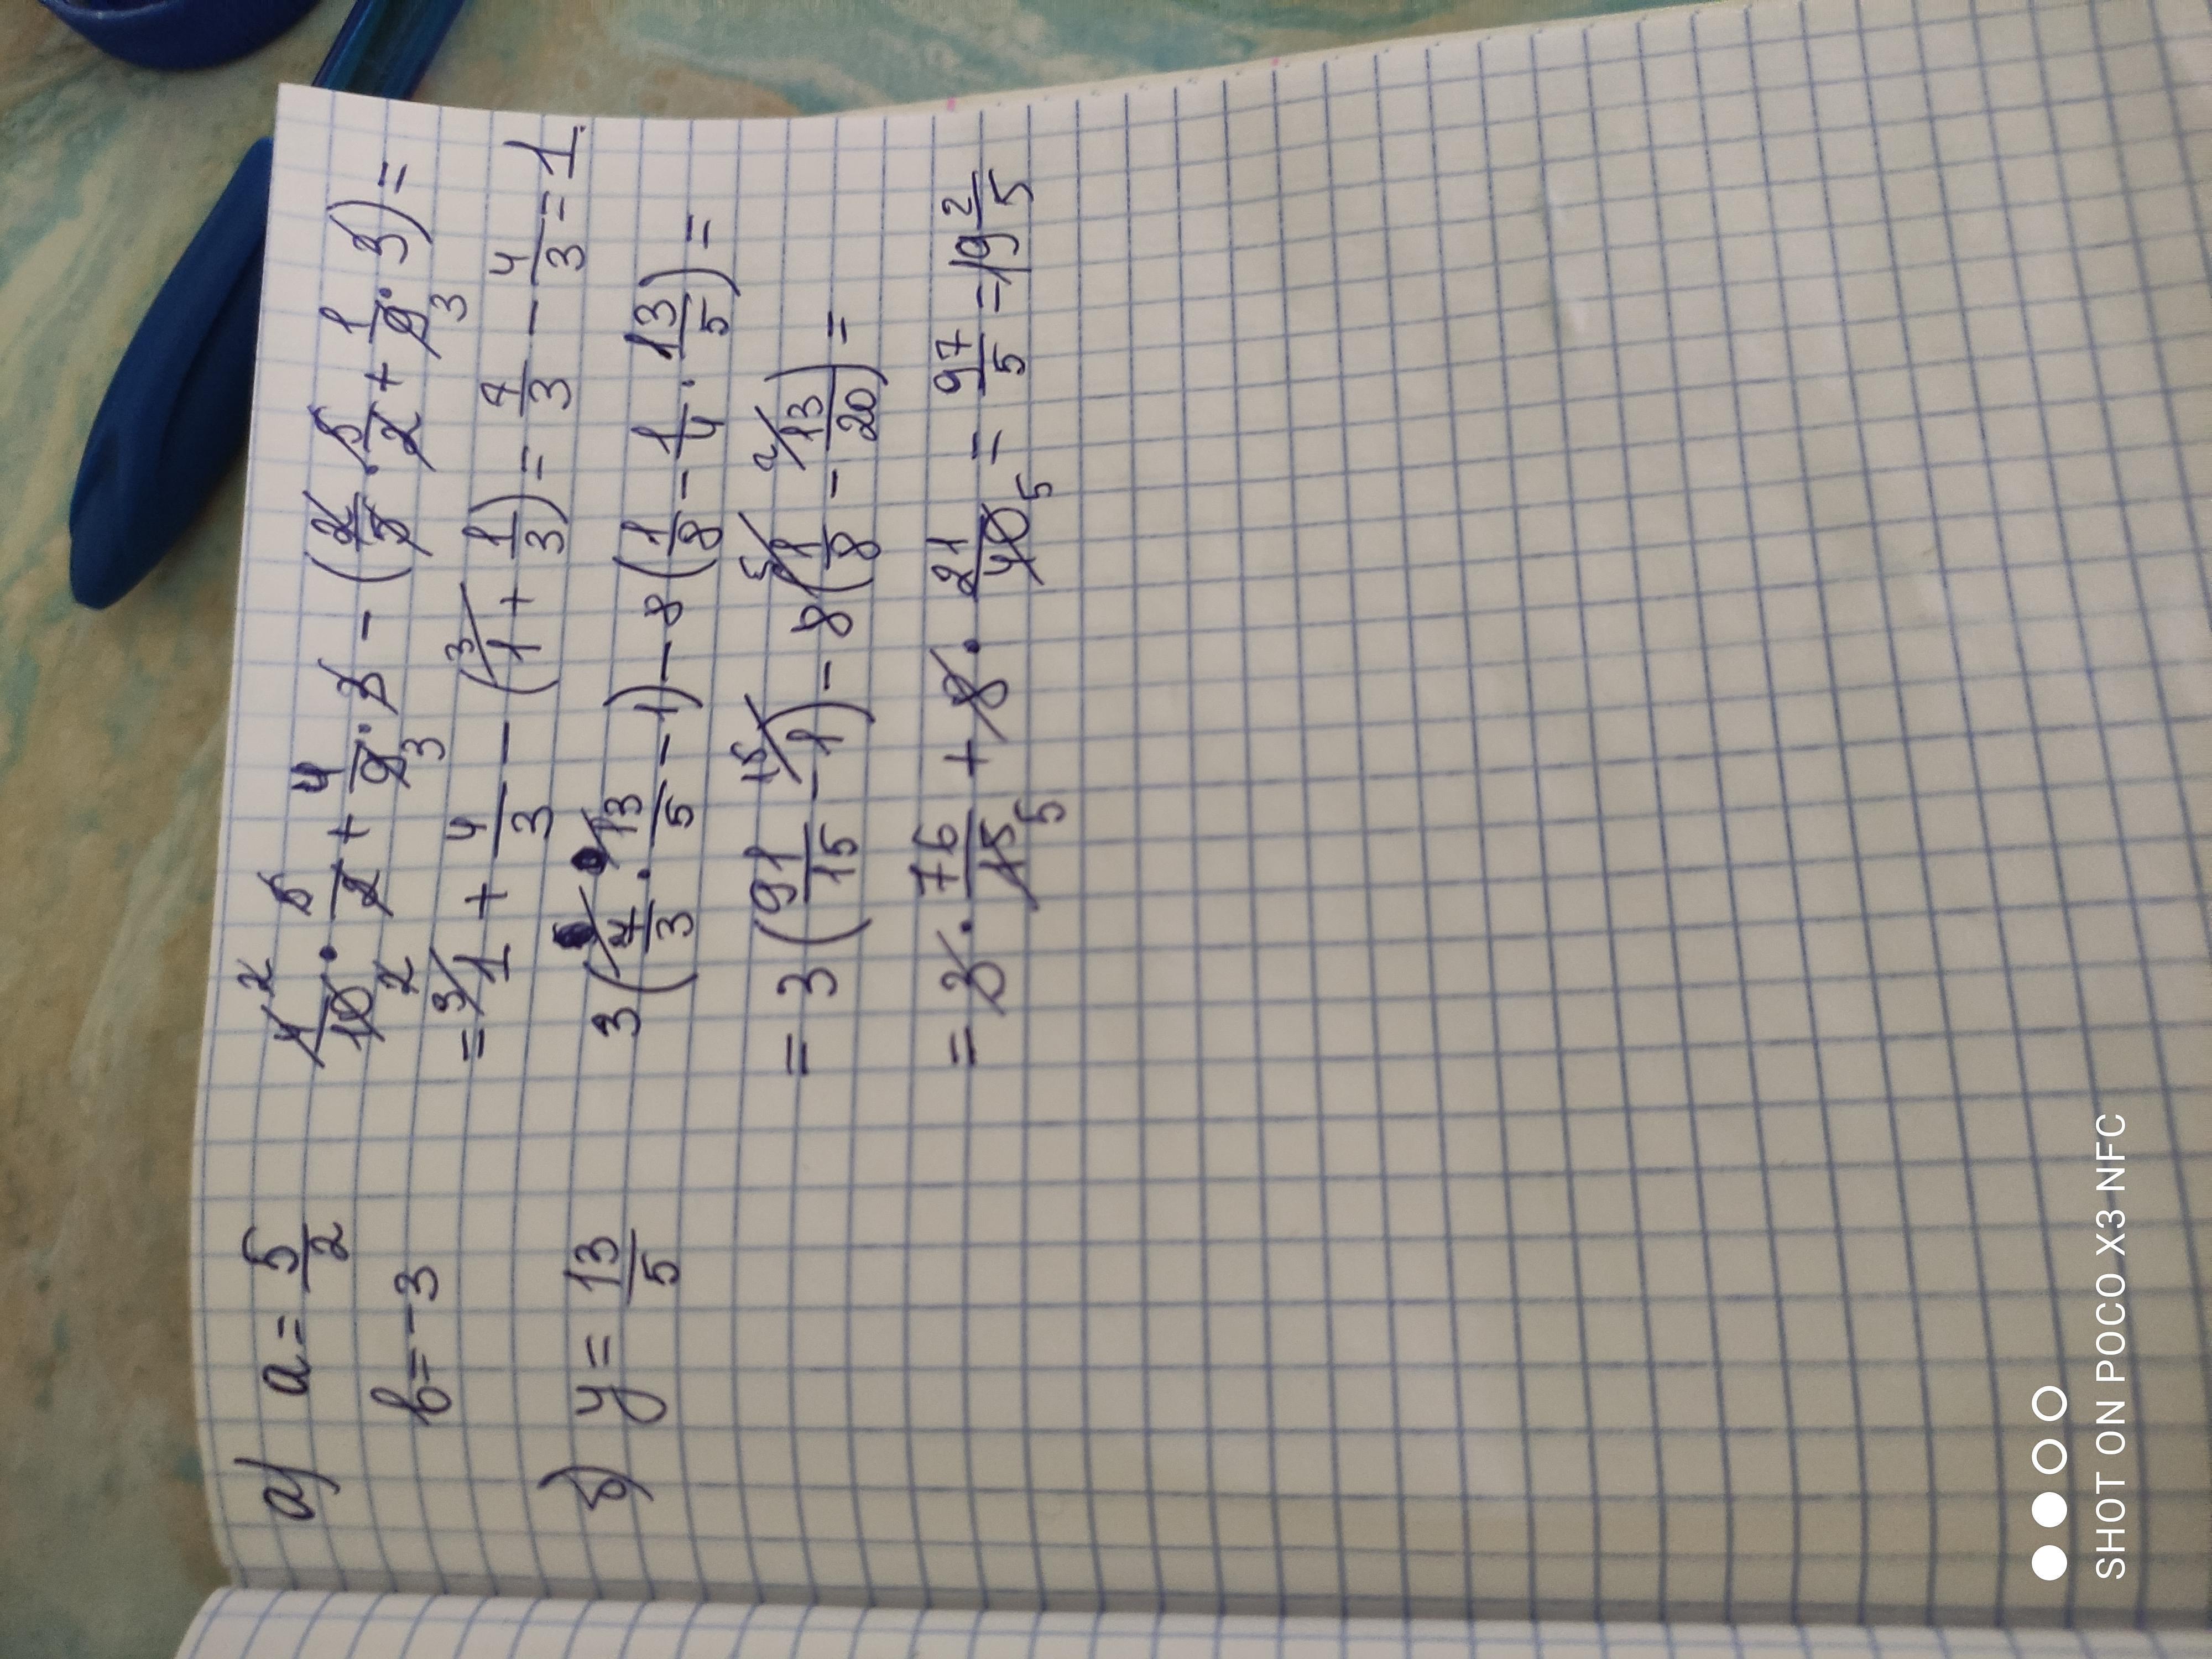 а) a = 5/2
b = -3
4/10 2 2 · 5/2 + 4/9 3 · 3 - (2/5 · 5/2 + 1/9 3 · 3) =
= 3/ 1 + 4/3 - (3/ 1 + 1/3) = 7/3 - 4/3 = 1.
б) y = 13/5
3 (7/3 · 13/5 - 1) - 8 (1/8 - 1/4 · 13/5) =
= 3 (91/15 - 15/ 1) - 8 (5/ 1/8 - 2/ 13/20) =
= 3 · 76/15 5 + 8 · 21/40 5 = 97/5 = 19 2/5
SHOT ON POCO X3 NFC